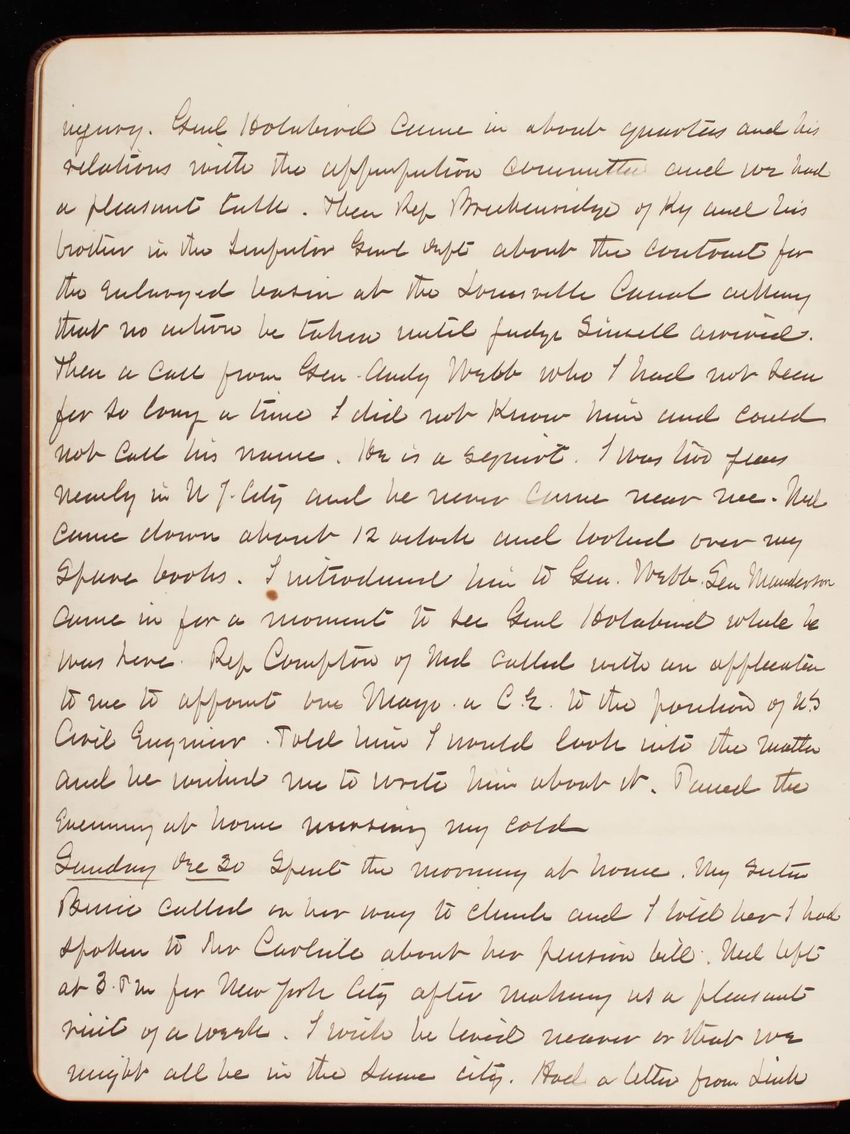 injury. Genl Holabird came in about quarters and his
relations with the appropriation committee and we had
a pleasant talk. Then Rep Breckenridge of Ky and his
brother in the Inspector Genl Dept about the contract for
the enlarged basin at the Louisville Canal asking
that no action be taken until Judge arrived.
Then a call from Gen. Andy Webb who I had not seen
for so long a time I did not know him and could
not call his name. He is a egoist. I was two years
nearly in N Y. City and he never came near me. Ned
came down about 12 oclock and looked over my
spare books. I introduced him to Gen. Webb. Gen Manderson
came in for a moment to see Genl Holabird while he
was here. Rep Compton of Md called with an application
to me to appoint one Mayo a C.E. to the position of US
Civil Engineer. Told him I would look into the matter
and he wished me to write him about it. Passed the
evening at home nursing my cold
Sunday Dec 30 Spent the morning at home. My sister
called on her way to church and I told her I had
spoken to Mr Carlisle about her pension bill. Ned left
at 3. P m for New York City after making us a pleasant
visit of a week. I wish he lived nearer or that we
might all be in the same city. Had a letter from